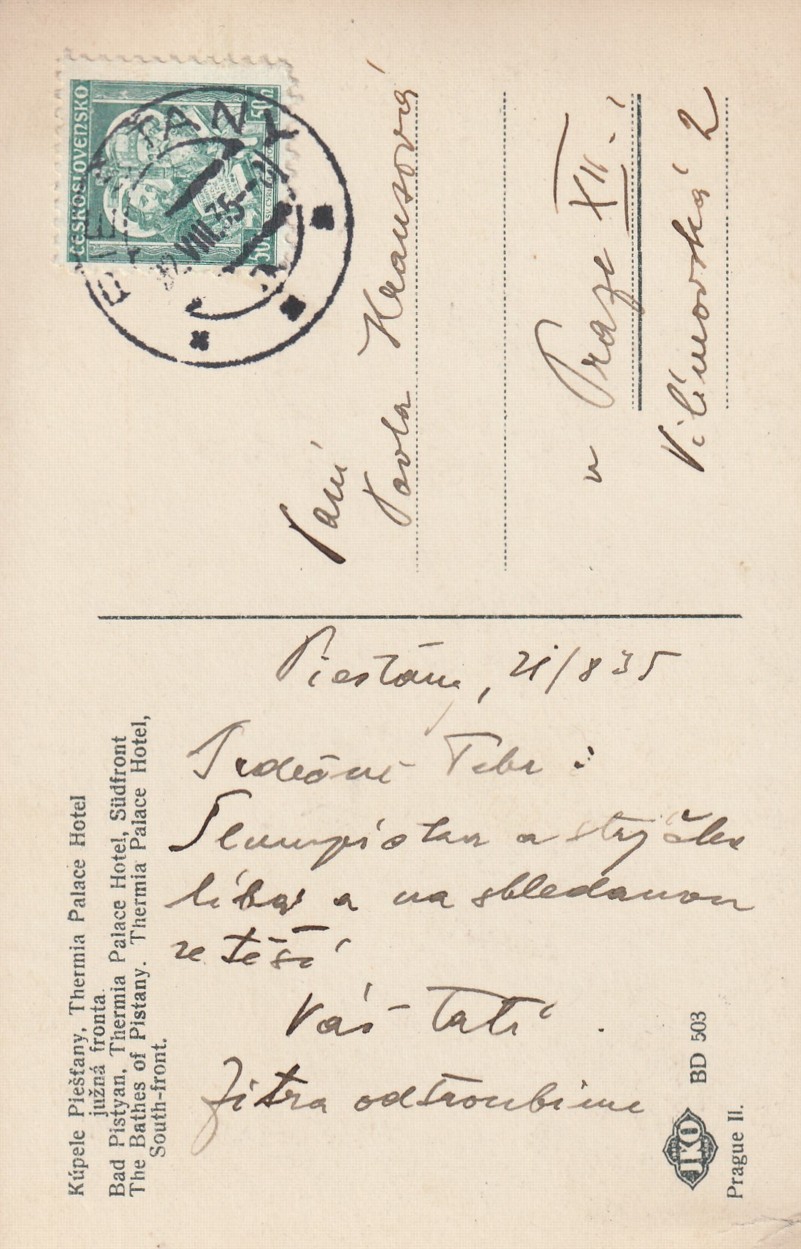 ČESKOSLOVENSKO
50h
PIEŠŤANY
Paní
Pavla Krausová
v Praze XII.
Vilímovská 2
Piestány, 21/8 35
Srdečně Tebe
a strýčka
líbá a na shledanou
se těší
Váš Táti
Zitra odtroubime
Kúpele Piešťany, Thermia Palace Hotel
južná fronta.
Bad Pistyan, Thermia Palace Hotel, Südfront
The Bathes of Pistany. Thermia Palace Hotel,
South-front.
IKO
BD 503
Prague II.